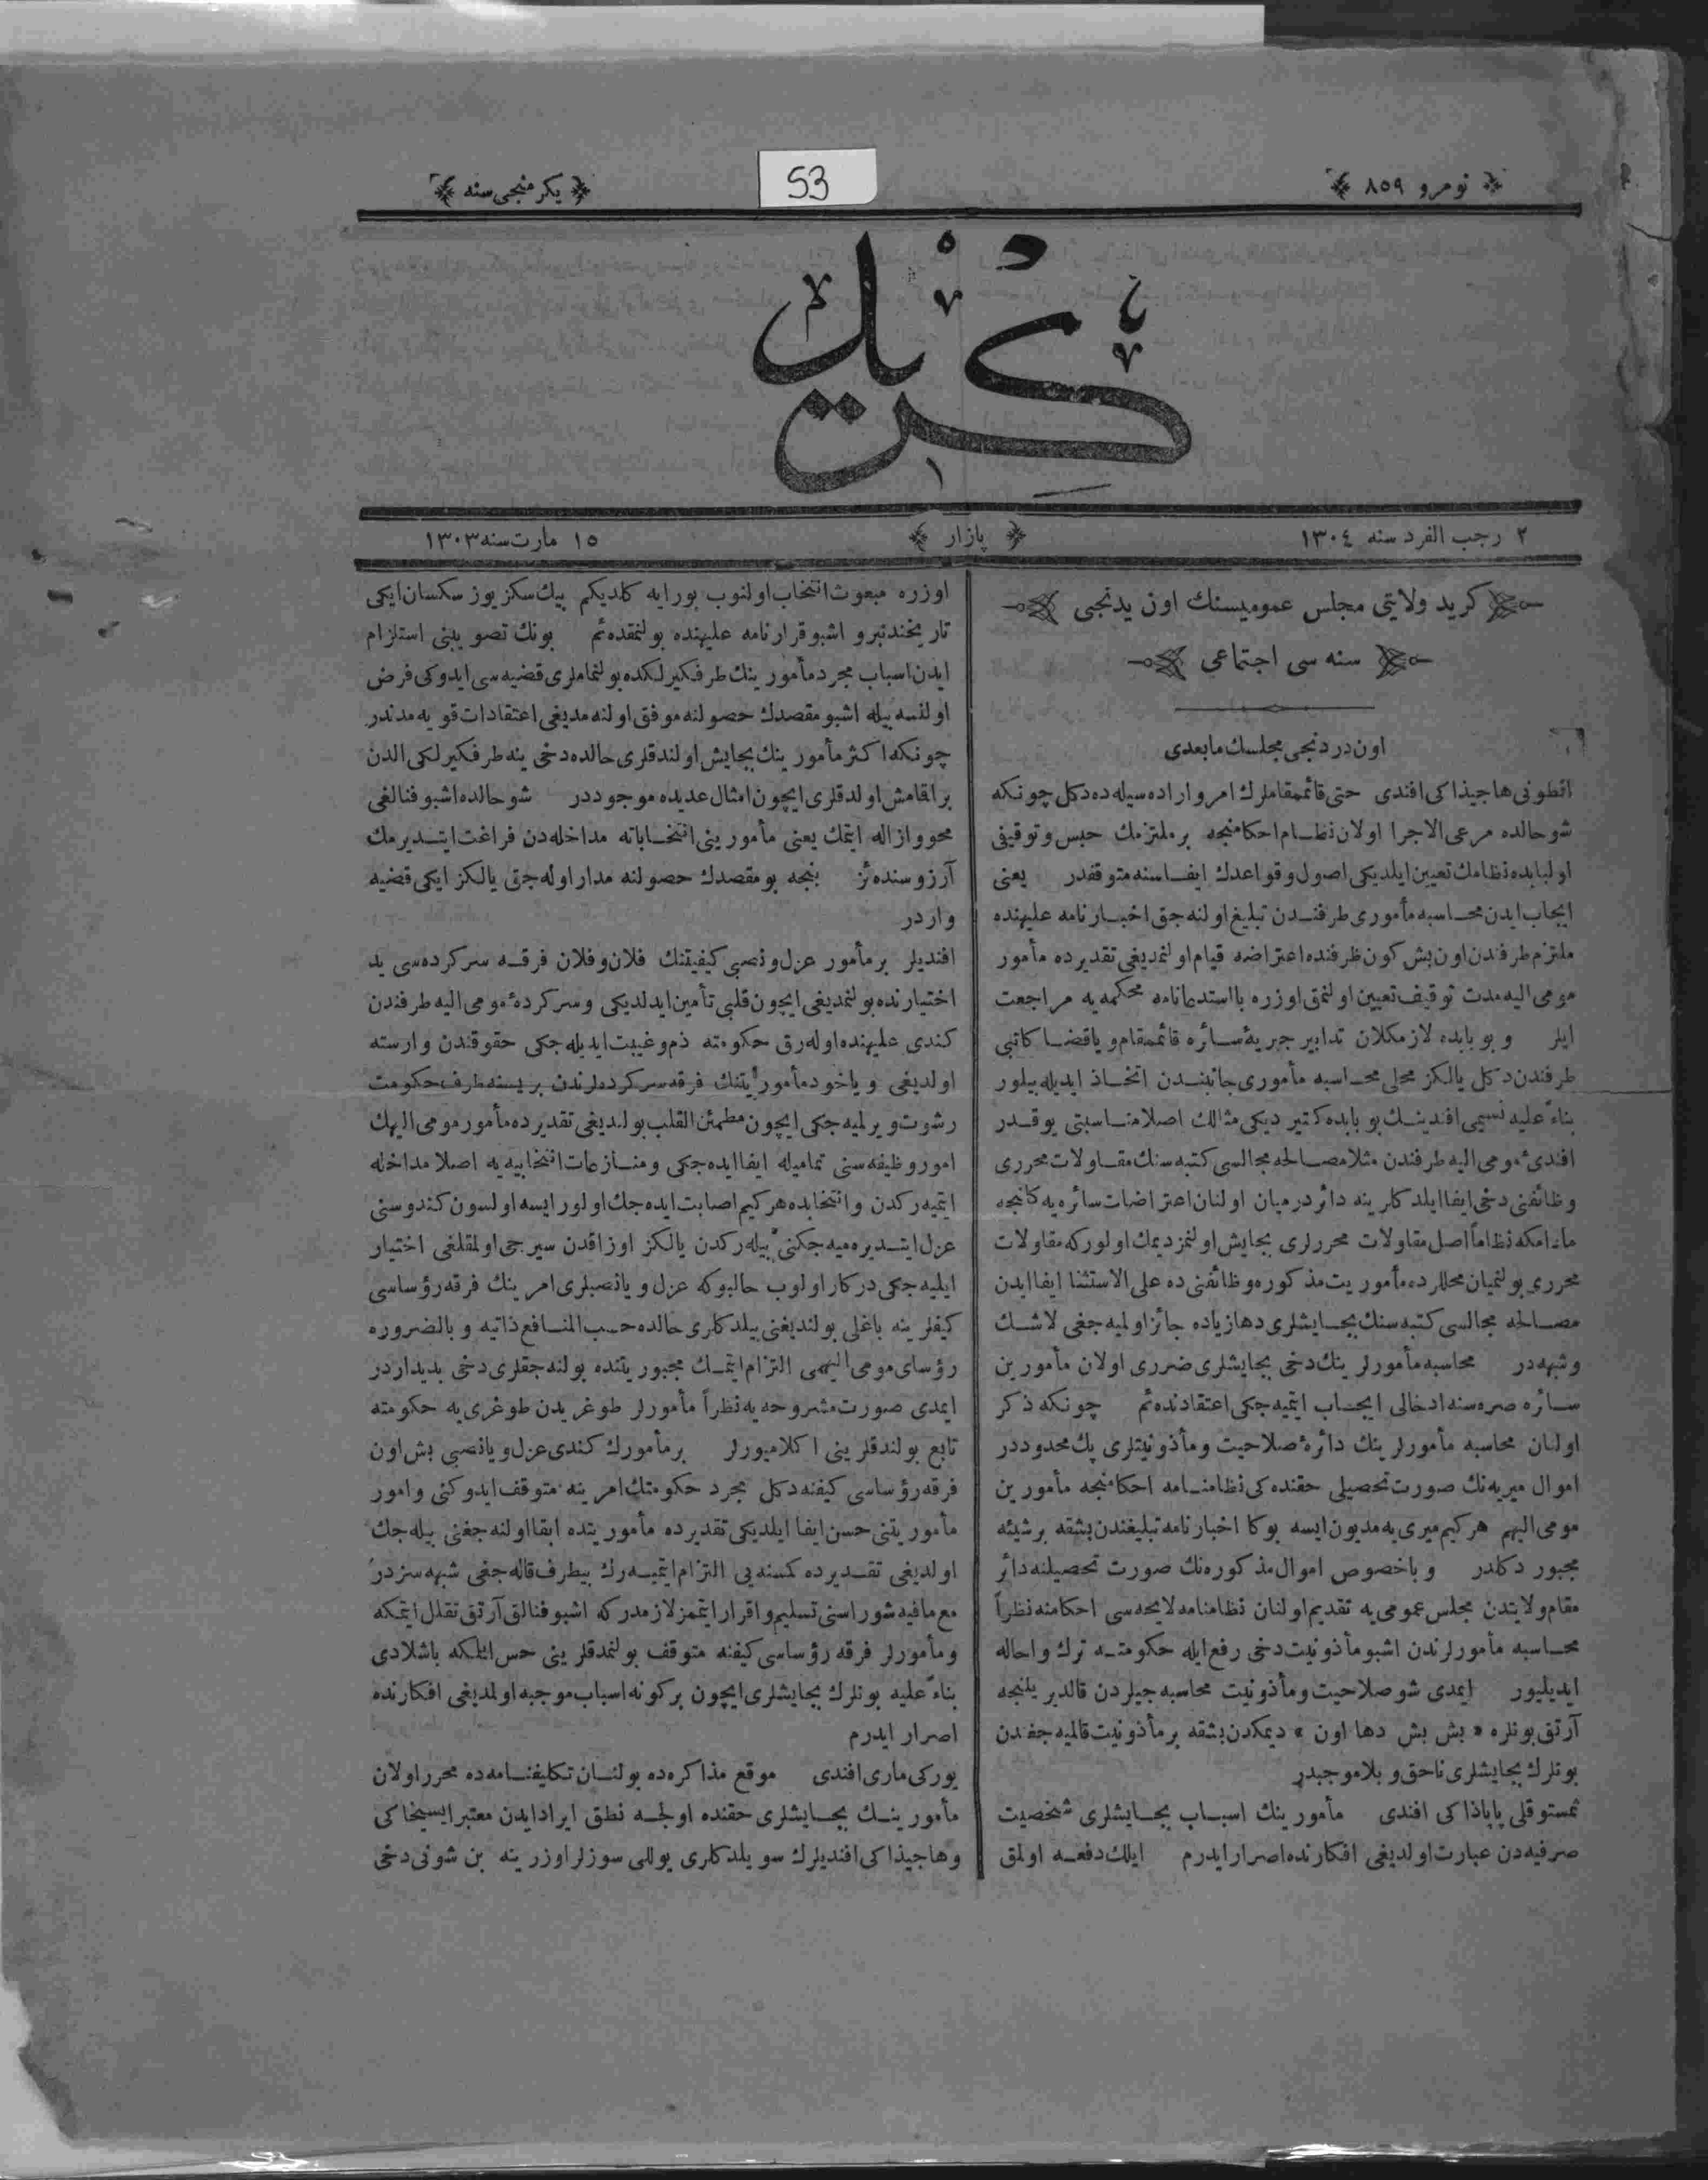 نومرو ٨٥٩
53
يكرمنجى سنه
كريد
٢ رجب الفرد سنه ١٣٠٤
پازار
١٥ مارت سنه ١٣٠٣
كريد ولايتى مجلس عموميسنك اون يدنجى
سنه سى اجتماعى
اون دردنجى مجلسك مابعدى
انطونى هاجيذاكى افندى حتى قائممقاملرك امر و اراده سيله ده دكل چونكه
شو حالده مرعى الاجرا اولان نظام احكامنجه بر ملتزمك حبس و توقيفى
اولبابده نظامك تعيين ايلديكى اصول و قواعدك ايفاسنه متوقفدر يعنى
ايجاب ايدن محاسبه مأمورى طرفندن تبليغ اولنه جق اخبارنامه عليهنده
ملتزم طرفندن اون بش كون ظرفنده اعتراضه قيام اولنمديغى تقديرده مأمور
مومى اليه مدت توقيف تعيين اولنمق اوزره با استدعانامه محكمه يه مراجعت
ايلر و بو بابده لازمكلان تدابير جبريۀ سائره قائممقام و ياقضا كاتبى
طرفندن دكل يالكز محلى محاسبه مأمورى جانبندن اتخاذ ايديله بيلور
بناءً عليه نسيمى افندينك بو بابده كتيرديكى مثالك اصلا مناسبتى يوقدر
افندئ مومى اليه طرفندن مثلا مصالحه مجالسى كتبه سنك مقاولات محررى
وظائفنى دخى ايفا ايلدكلرينه دائر درميان اولنان اعتراضات سائره يه كلنجه
مادامكه نظاماً اصل مقاولات محررلرى بجايش اولنمز ديمك اولور كه مقاولات
محررى بولنميان محللرده مأموريت مذكوره وظائفنى ده على الاستثنا ايفا ايدن
مصالحه مجالسى كتبه سنك بجايشلرى دها زياده جائز اولميه جغى لاشك
و شبهه در محاسبه مأمورلرينك دخى بجايشلرى ضررى اولان مأمورين
سائره صره سنه ادخالى ايجاب ايتميه جكى اعتقادنده ئم چونكه ذكر
اولنان محاسبه مأمورلرينك دائرۀ صلاحيت و مأذونيتلرى پك محدوددر
اموال ميريه نك صورت تحصيلى حقنده كى نظامنامه احكامنجه مأمورين
مومى اليهم هر كيم ميرى يه مديون ايسه بوكا اخبارنامه تبليغندن بشقه بر شيئه
مجبور دكلدر و باخصوص اموال مذكوره نك صورت تحصيلنه دائر
مقام ولايتدن مجلس عمومى يه تقديم اولنان نظامنامه لايحه سى احكامنه نظراً
محاسبه مأمورلرندن اشبو مأذونيت دخى رفع ايله حكومته ترك و احاله
ايديليور ايمدى شو صلاحيت و مأذونيت محاسبه جيلردن قالديريلنجه
آرتق بونلره « بش بش دها اون » ديمكدن بشقه بر مأذونيت قالميه جغندن
بونلرك بجايشلرى ناحق و بلاموجبدر
ثمستوقلى پاپاذاكى افندى مأمورينك اسباب بجايشلرى شخصيت
صرفيه دن عبارت اولديغى افكارنده اصرار ايدرم ايلك دفعه اولمق
اوزره مبعوث انتخاب اولنوب بورايه كلديكم بيك سكز يوز سكسان ايكى
تاريخندنبرو اشبو قرارنامه عليهنده بولنمقده ئم بونك تصويبنى استلزام
ايدن اسباب مجرد مأمورينك طرفكيرلكده بولنماملرى قضيه سى ايدوكى فرض
اولنسه بيله اشبو مقصدك حصولنه موفق اولنه مديغى اعتقادات قويه مدندر
چونكه اكثر مأمورينك بجايش اولندقلرى حالده دخى ينه طرفكيرلكى الدن
براقمامش اولدقلرى ايچون امثال عديده موجوددر شو حالده اشبو فنالغى
محو و ازاله ايتمك يعنى مأمورينى انتخاباته مداخله دن فراغت ايتديرمك
آرزوسنده ئز بنجه بو مقصدك حصولنه مدار اوله جق يالكز ايكى قضيه
واردر
افنديلر بر مأمور عزل و نصبى كيفيتنك فلان و فلان فرقه سركرده سى يد
اختيارنده بولنمديغى ايچون قلبى تأمين ايدلديكى و سركردۀ مومى اليه طرفندن
كندى عليهنده اوله رق حكومته ذم و غيبت ايديله جكى حقوقندن وارسته
اولديغى و ياخود مأموريتنك فرقه سركرده لرندن بريسنه طرف حكومت
رشوت ويرلميه جكى ايچون مطمئن القلب بولنديغى تقديرده مأمور مومى اليهك
امور وظيفه سنى تماميله ايفا ايده جكى و منازعات انتخابيه يه اصلا مداخله
ايتميه ركدن و انتخابده هر كيم اصابت ايده جك اولور ايسه اولسون كندوسنى
عزل ايتديره ميه جكنى بيله ركدن يالكز اوزاقدن سيرجى اولمقلغى اختيار
ايليه جكى دركار اولوب حالبوكه عزل و يا نصبلرى امرينك فرقه رؤساسى
كيفلرينه باغلى بولنديغنى بيلدكلرى حالده حسب المنافع ذاتيه و بالضروره
رؤساى مومى اليهمى التزام ايتمك مجبوريتنده بولنه جقلرى دخى بديدار در
ايمدى صورت مشروحه يه نظراً مأمورلر طوغريدن طوغرى يه حكومته
تابع بولندقلرينى اكلاميورلر بر مأمورك كندى عزل و يا نصبى بش اون
فرقه رؤساسى كيفنه دكل مجرد حكومتك امرينه متوقف ايدوكنى و امور
مأموريتنى حسن ايفا ايلديكى تقديرده مأموريتده ابقا اولنه جغنى بيله جك
اولديغى تقديرده كمسنه يى التزام ايتميه رك بيطرف قاله جغى شبهه سزدر
مع مافيه شوراسنى تسليم و اقرار ايتمز لازمدر كه اشبو فنالق آرتق تقلل ايتمكه
و مأمورلر فرقه رؤساسى كيفنه متوقف بولنمدقلرينى حس ايتمكه باشلادى
بناءً عليه بونلرك بجايشلرى ايچون بر كونه اسباب موجبه اولمديغى افكارنده
اصرار ايدرم
يوركى مارى افندى موقع مذاكره ده بولنان تكليفنامه ده محرر اولان
مأمورينك بجايشلرى حقنده اولجه نطق ايراد ايدن معتبر
و هاجيذاكى افنديلرك سويلدكلرى يوللى سوزلر اوزرينه بن شونى دخى